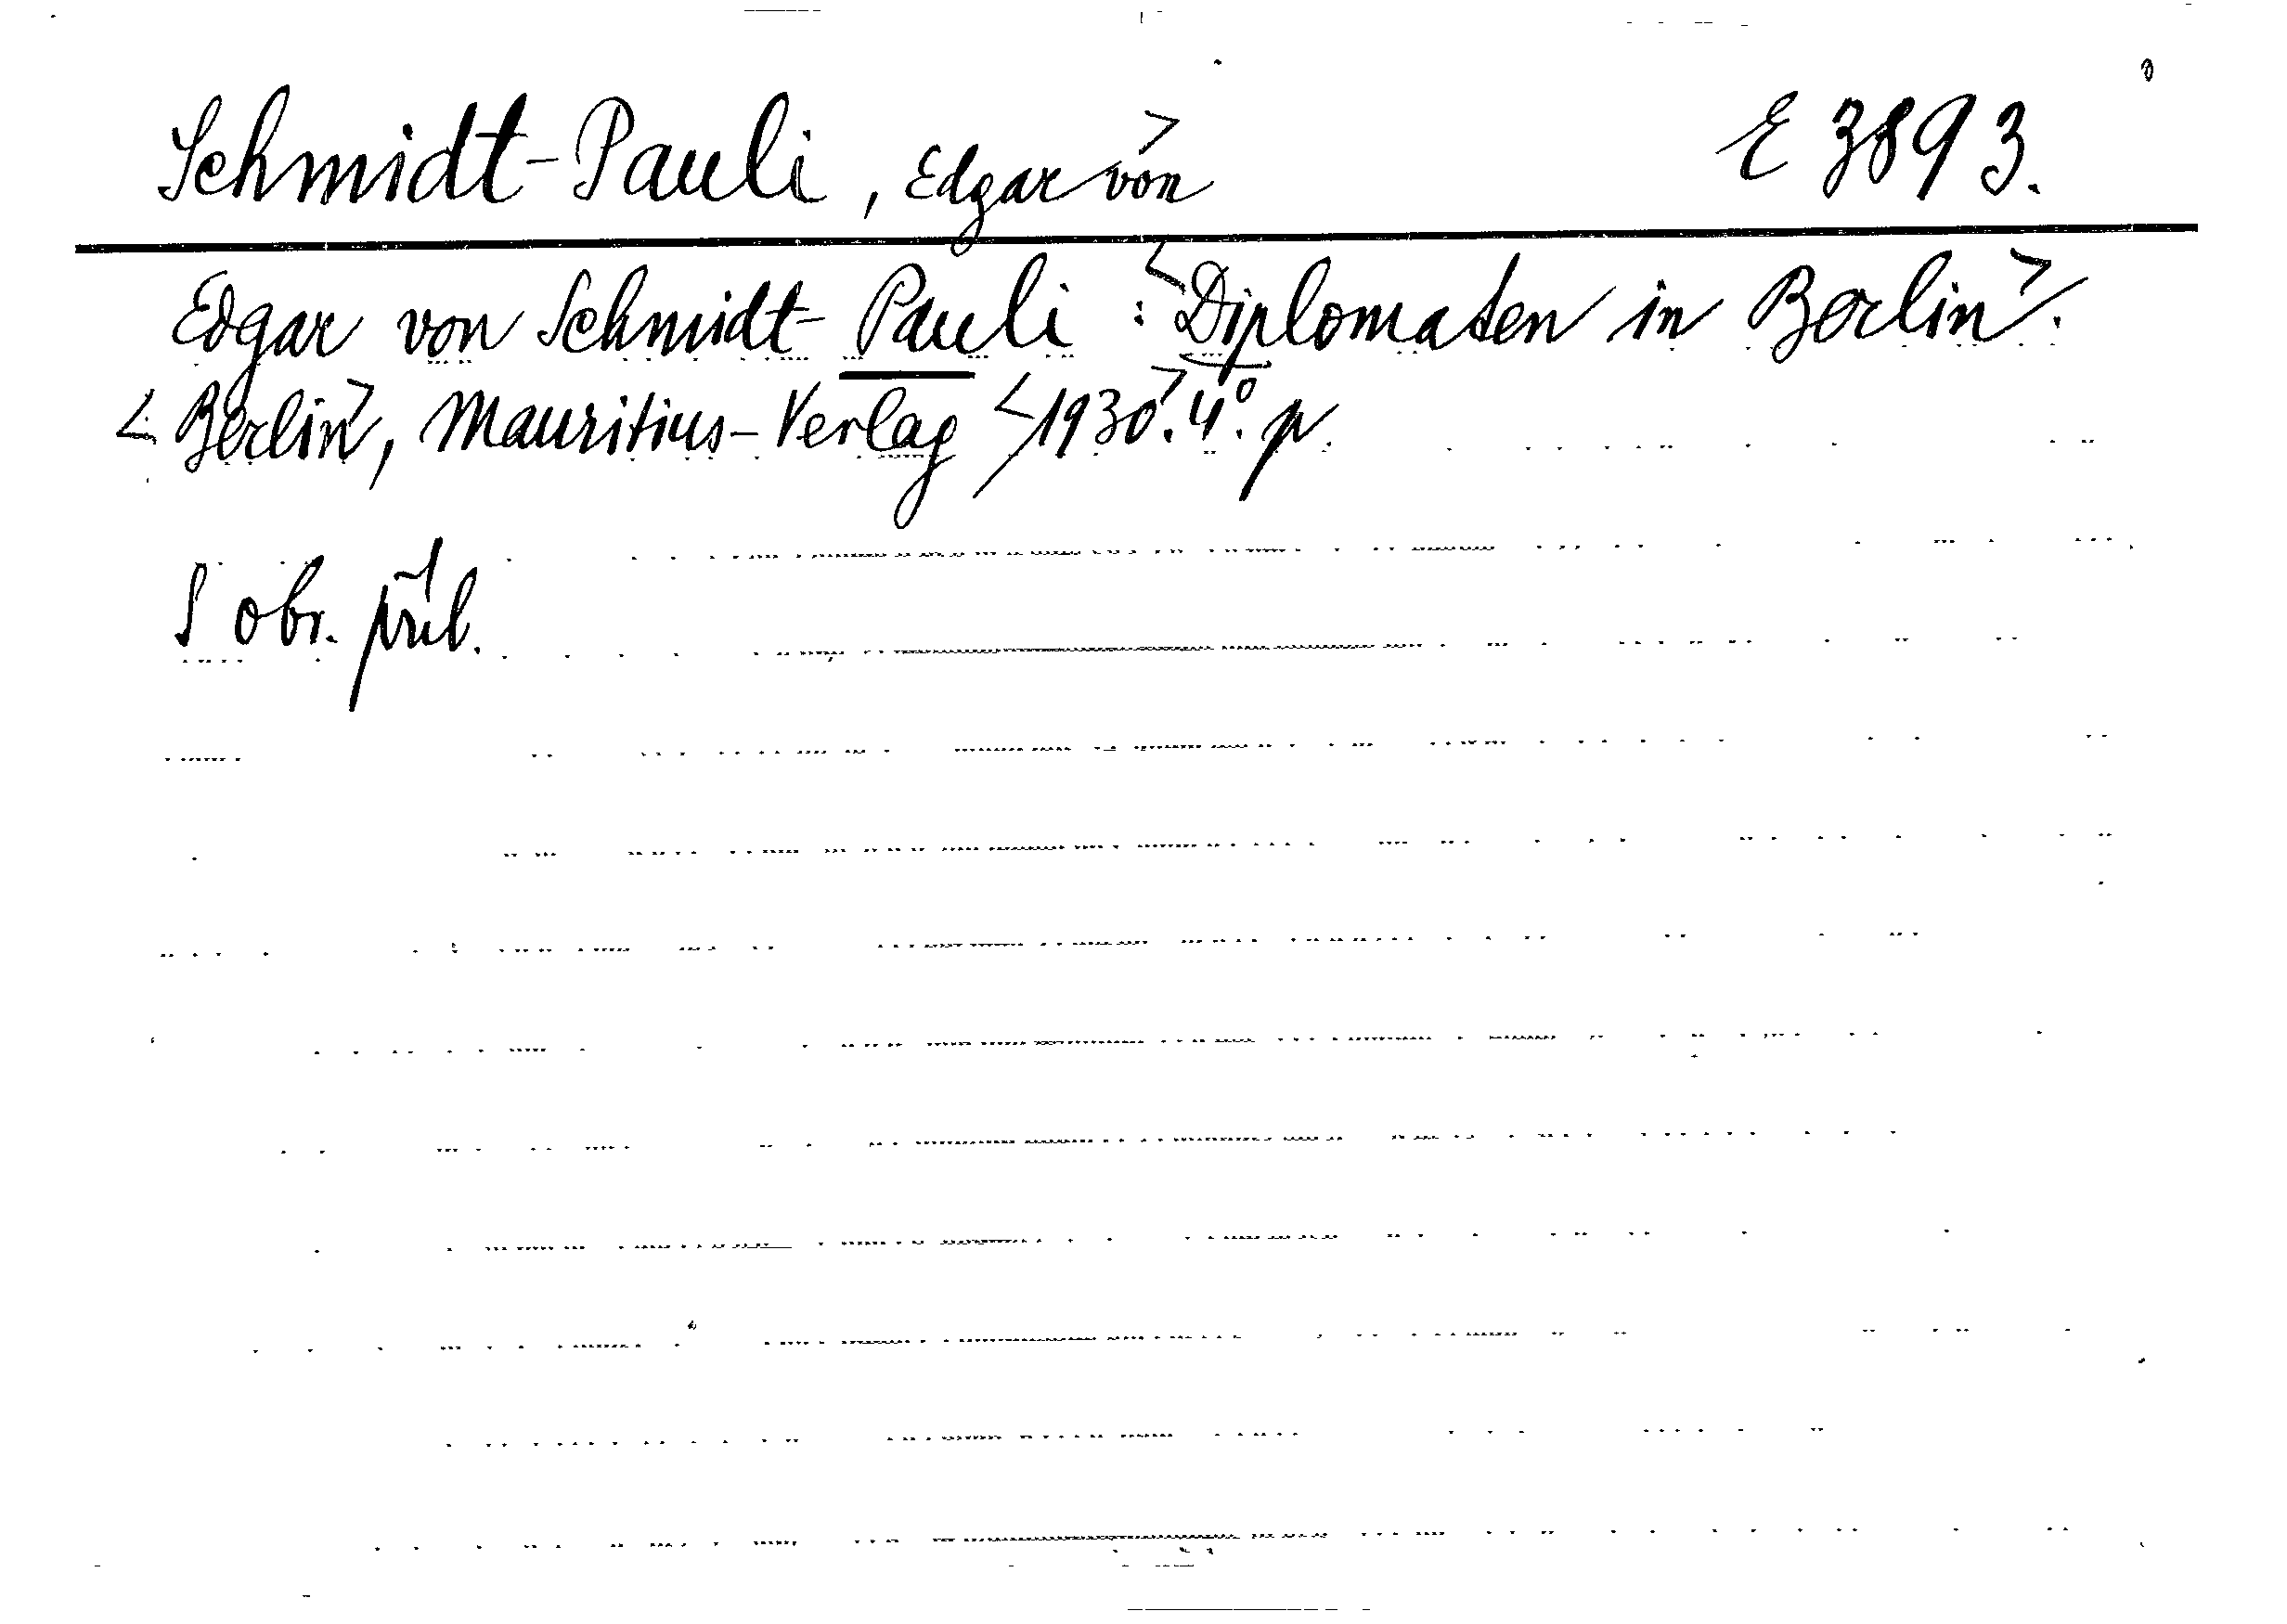 Schmidt-Pauli, Edgar von> E 3893.
Edgar von Schmidt-Pauli : <Diplomaten in Berlin>.
<Berlin>, Mauritius-Verlag <1930>. 4°. p.
S obr. příl.